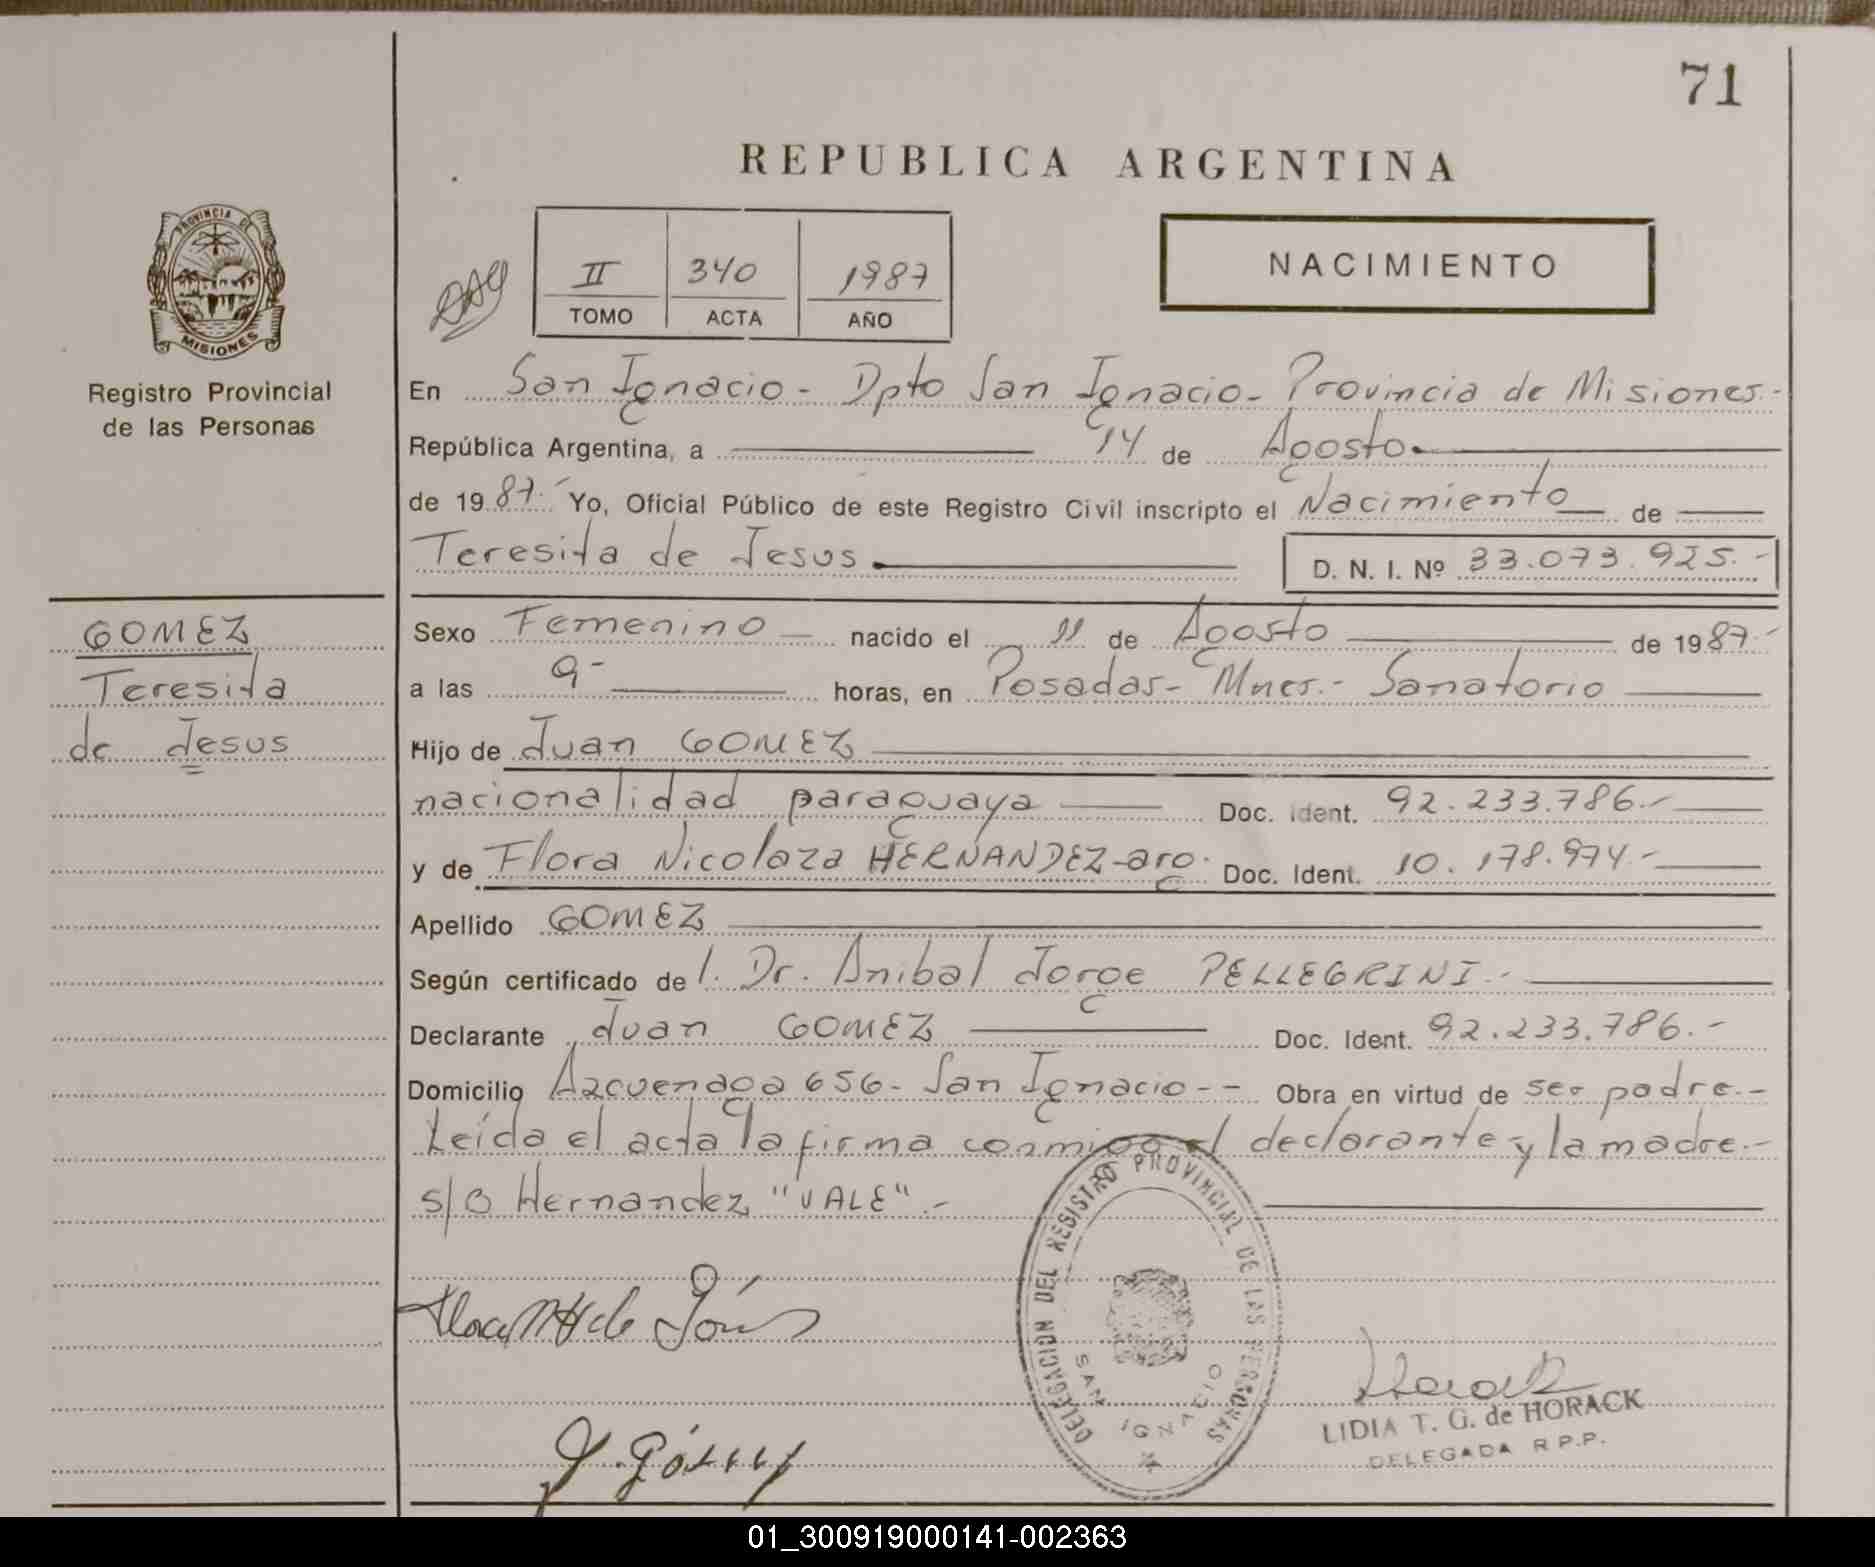 71
REPUBLICA ARGENTINA
PROVINCIA DE
MISIONES
Registro Provincial
de las Personas
II 340 1987
TOMO ACTA AÑO
NACIMIENTO
En San Ignacio - Dpto San Ignacio - Provincia de Misiones.-
República Argentina, a 14 de Agosto
de 1987.- Yo, Oficial Público de este Registro Civil inscripto el Nacimiento de
Teresita de Jesus D. N. I. Nº 33.073.925.-
GOMEZ
Teresita
de Jesus
Sexo Femenino nacido el 11 de Agosto de 1987.-
a las 9- horas, en Posadas- Mnes.- Sanatorio
Hijo de Juan GOMEZ
nacionalidad paraguaya Doc. Ident. 92.233.786.-
y de Flora Nicolaza HERNANDEZ-arg. Doc. Ident. 10.178.974.-
Apellido GOMEZ
Según certificado de l. Dr. Anibal Jorge PELLEGRINI.-
Declarante Juan GOMEZ Doc. Ident. 92.233.786.-
Domicilio Azcuenaga 656- San Ignacio-- Obra en virtud de ser padre.-
Leída el acta la firma conmigo el declarante y la madre.-
s/o Hernandez "VALE".-
DELEGACION DEL REGISTRO PROVINCIAL DE LAS PERSONAS
SAN IGNACIO
J. Gómez
LIDIA T. G. de HORACK
DELEGADA R.P.P.
01_300919000141-002363